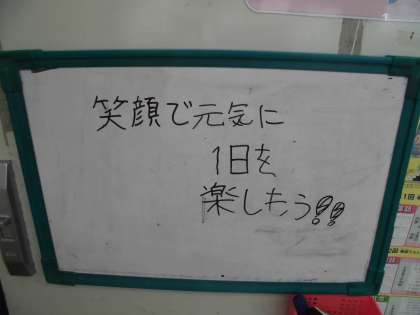 笑顔で元気に
1日を
楽しもう!!